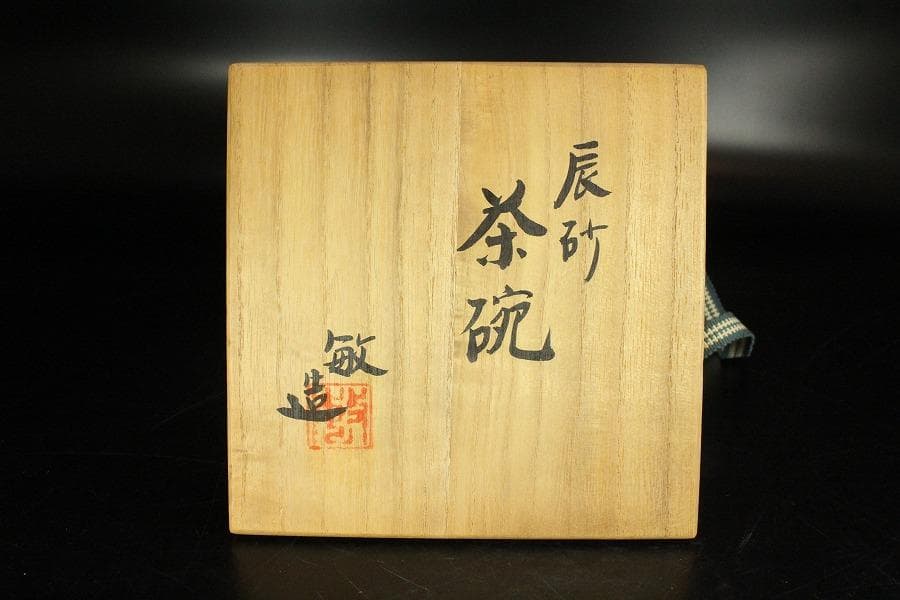 辰砂
茶碗
敏造